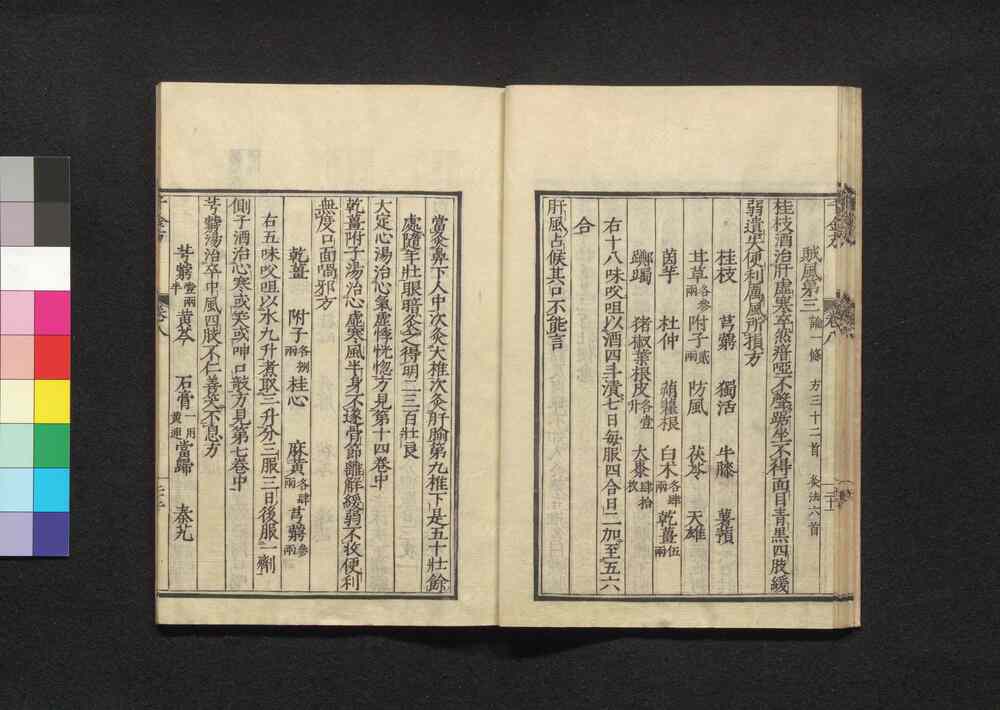 賊風第三 論一條 方三十二首 灸法六首
桂枝酒治肝虛寒卒然瘖啞不聲踞坐不得面目青黑四肢緩
弱遺失便利厲風所損方
桂枝 芎藭 獨活 牛膝 薯蕷
甘草各參兩 附子貳兩 防風 茯苓 天雄
茵芋 杜仲 蒴藋根 白术各肆兩 乾薑伍兩
躑躅 猪椒葉根皮各壹升 大棗肆拾枚
右十八味㕮咀以酒四斗漬七日每服四合日二加至五六
合
肝風占候其口不能言
當灸鼻下人中次灸大椎次灸肝腧第九椎下是五十壯餘
處隨年壯眼暗灸之得明二三百壯良
大定心湯治心氣虛悸恍惚方見第十四卷中
乾薑附子湯治心虛寒風半身不遂骨節離解緩弱不收便利
無度口面喎邪方
乾薑 附子各捌兩 桂心 麻黃各肆兩 芎藭參兩
右五味㕮咀以水九升煮取三升分三服三日後服一劑
側子酒治心寒或笑或呻口敧方見第七卷中
芎藭湯治卒中風四肢不仁善笑不息方
芎藭壹兩半 黄芩 石膏一用黄連 當歸 秦艽
卷八